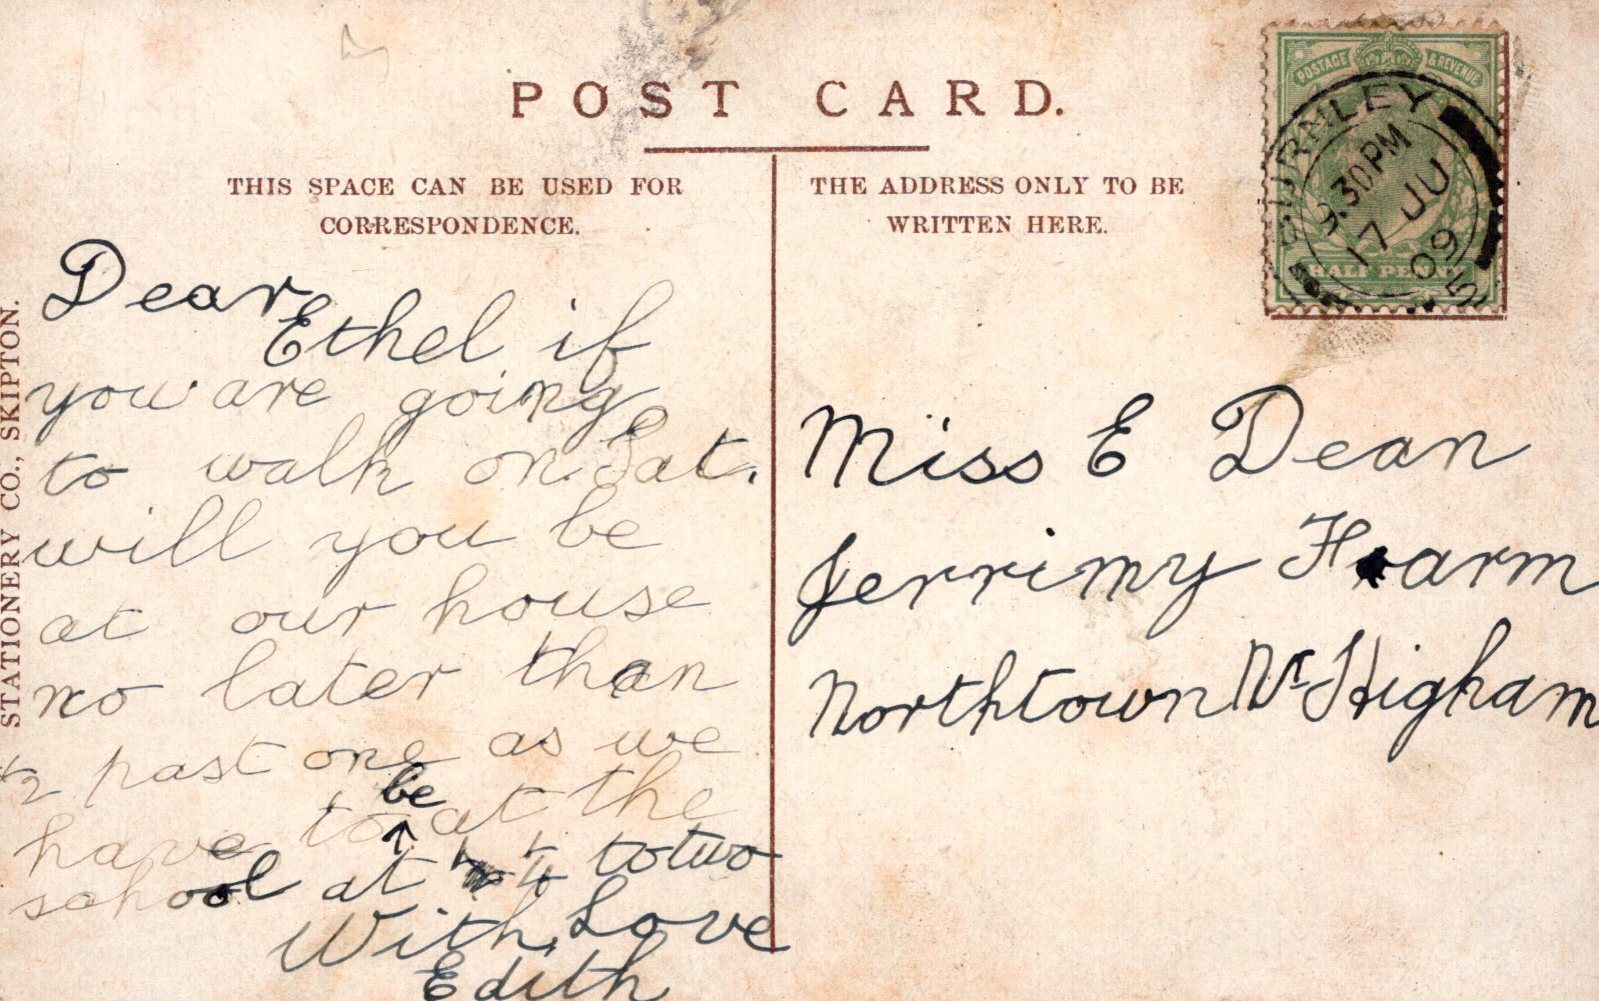 POST CARD.
THIS SPACE CAN BE USED FOR
CORRESPONDENCE.
THE ADDRESS ONLY TO BE
WRITTEN HERE.
POSTAGE & REVENUE
HALF PENNY
BURNLEY
9.30PM
17 JU
09
STATIONERY CO., SKIPTON.
Dear
Ethel if
you are going
to walk on Sat.
will you be
at our house
no later than
1/2 past one as we
have to be at the
school at 1/4 to two
With Love
Edith
Miss E Dean
Jerrimy Farm
Northtown Nr Higham